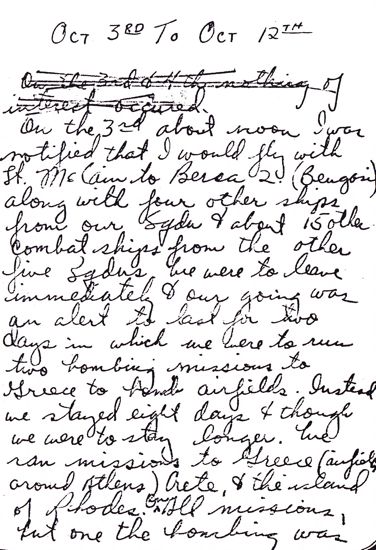 OCT 3RD TO OCT 12TH
On the 3rd & 4th nothing of
interest occured.
On the 3rd about noon I was
notified that I would fly with
Lt. McCain to Berca 2. (Bengasi)
along with four other ships
from our Sqdn & about 15 other
combat ships from the other
five Sqdns. We were to leave
immediately & our going was
an alert to last for two
days in which we were to run
two bombing missions to
Greece to bomb airfields. Instead
we stayed eight days & though
we were to stay longer. We
ran missions to Greece (airfields
around Athens) Crete, & the island
of Rhodes. On All missions,
but one the bombing was